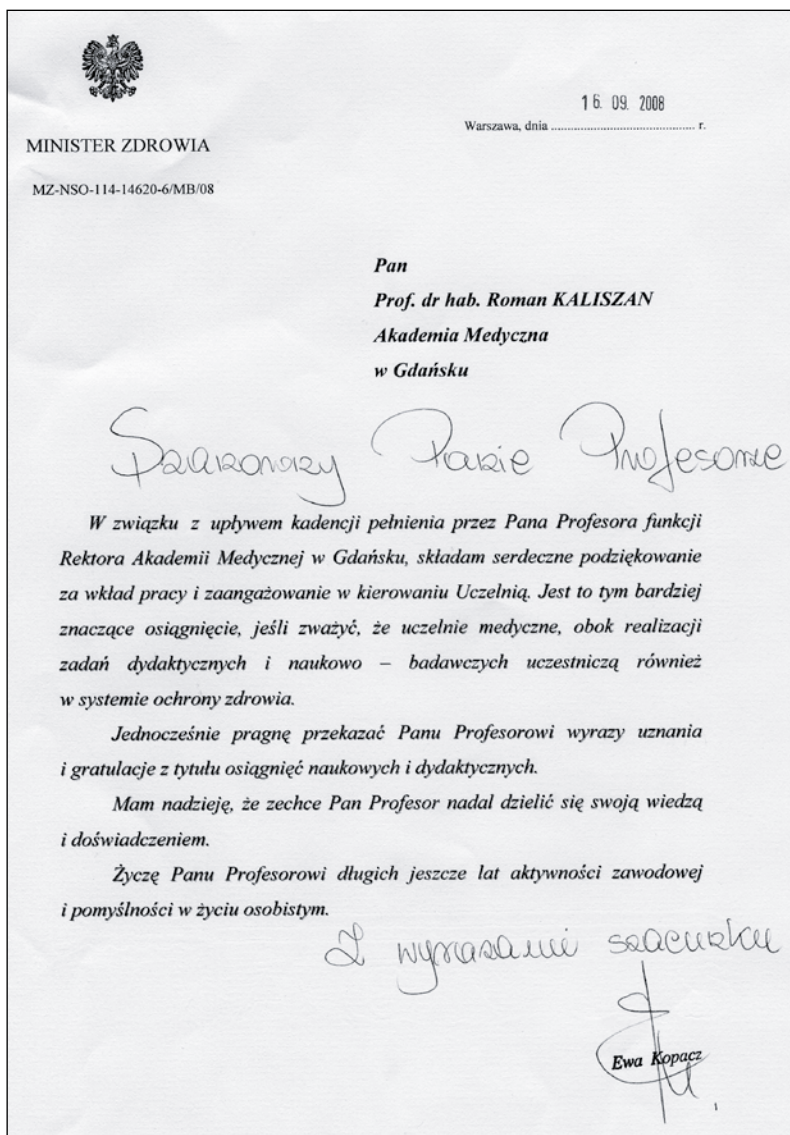 16. 09. 2008
Warszawa, dnia ................................................ r.
MINISTER ZDROWIA
MZ-NSO-114-14620-6/MB/08
Pan
Prof. dr hab. Roman KALISZAN
Akademia Medyczna
w Gdańsku
Szanowny Panie Profesorze
W związku z upływem kadencji pełnienia przez Pana Profesora funkcji
Rektora Akademii Medycznej w Gdańsku, składam serdeczne podziękowanie
za wkład pracy i zaangażowanie w kierowaniu Uczelnią. Jest to tym bardziej
znaczące osiągnięcie, jeśli zważyć, że uczelnie medyczne, obok realizacji
zadań dydaktycznych i naukowo – badawczych uczestniczą również
w systemie ochrony zdrowia.
Jednocześnie pragnę przekazać Panu Profesorowi wyrazy uznania
i gratulacje z tytułu osiągnięć naukowych i dydaktycznych.
Mam nadzieję, że zechce Pan Profesor nadal dzielić się swoją wiedzą
i doświadczeniem.
Życzę Panu Profesorowi długich jeszcze lat aktywności zawodowej
i pomyślności w życiu osobistym.
Z wyrazami szacunku
Ewa Kopacz
1